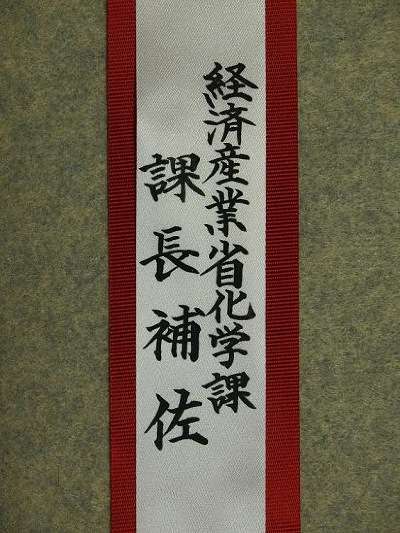 経済産業省化学課
課長補佐